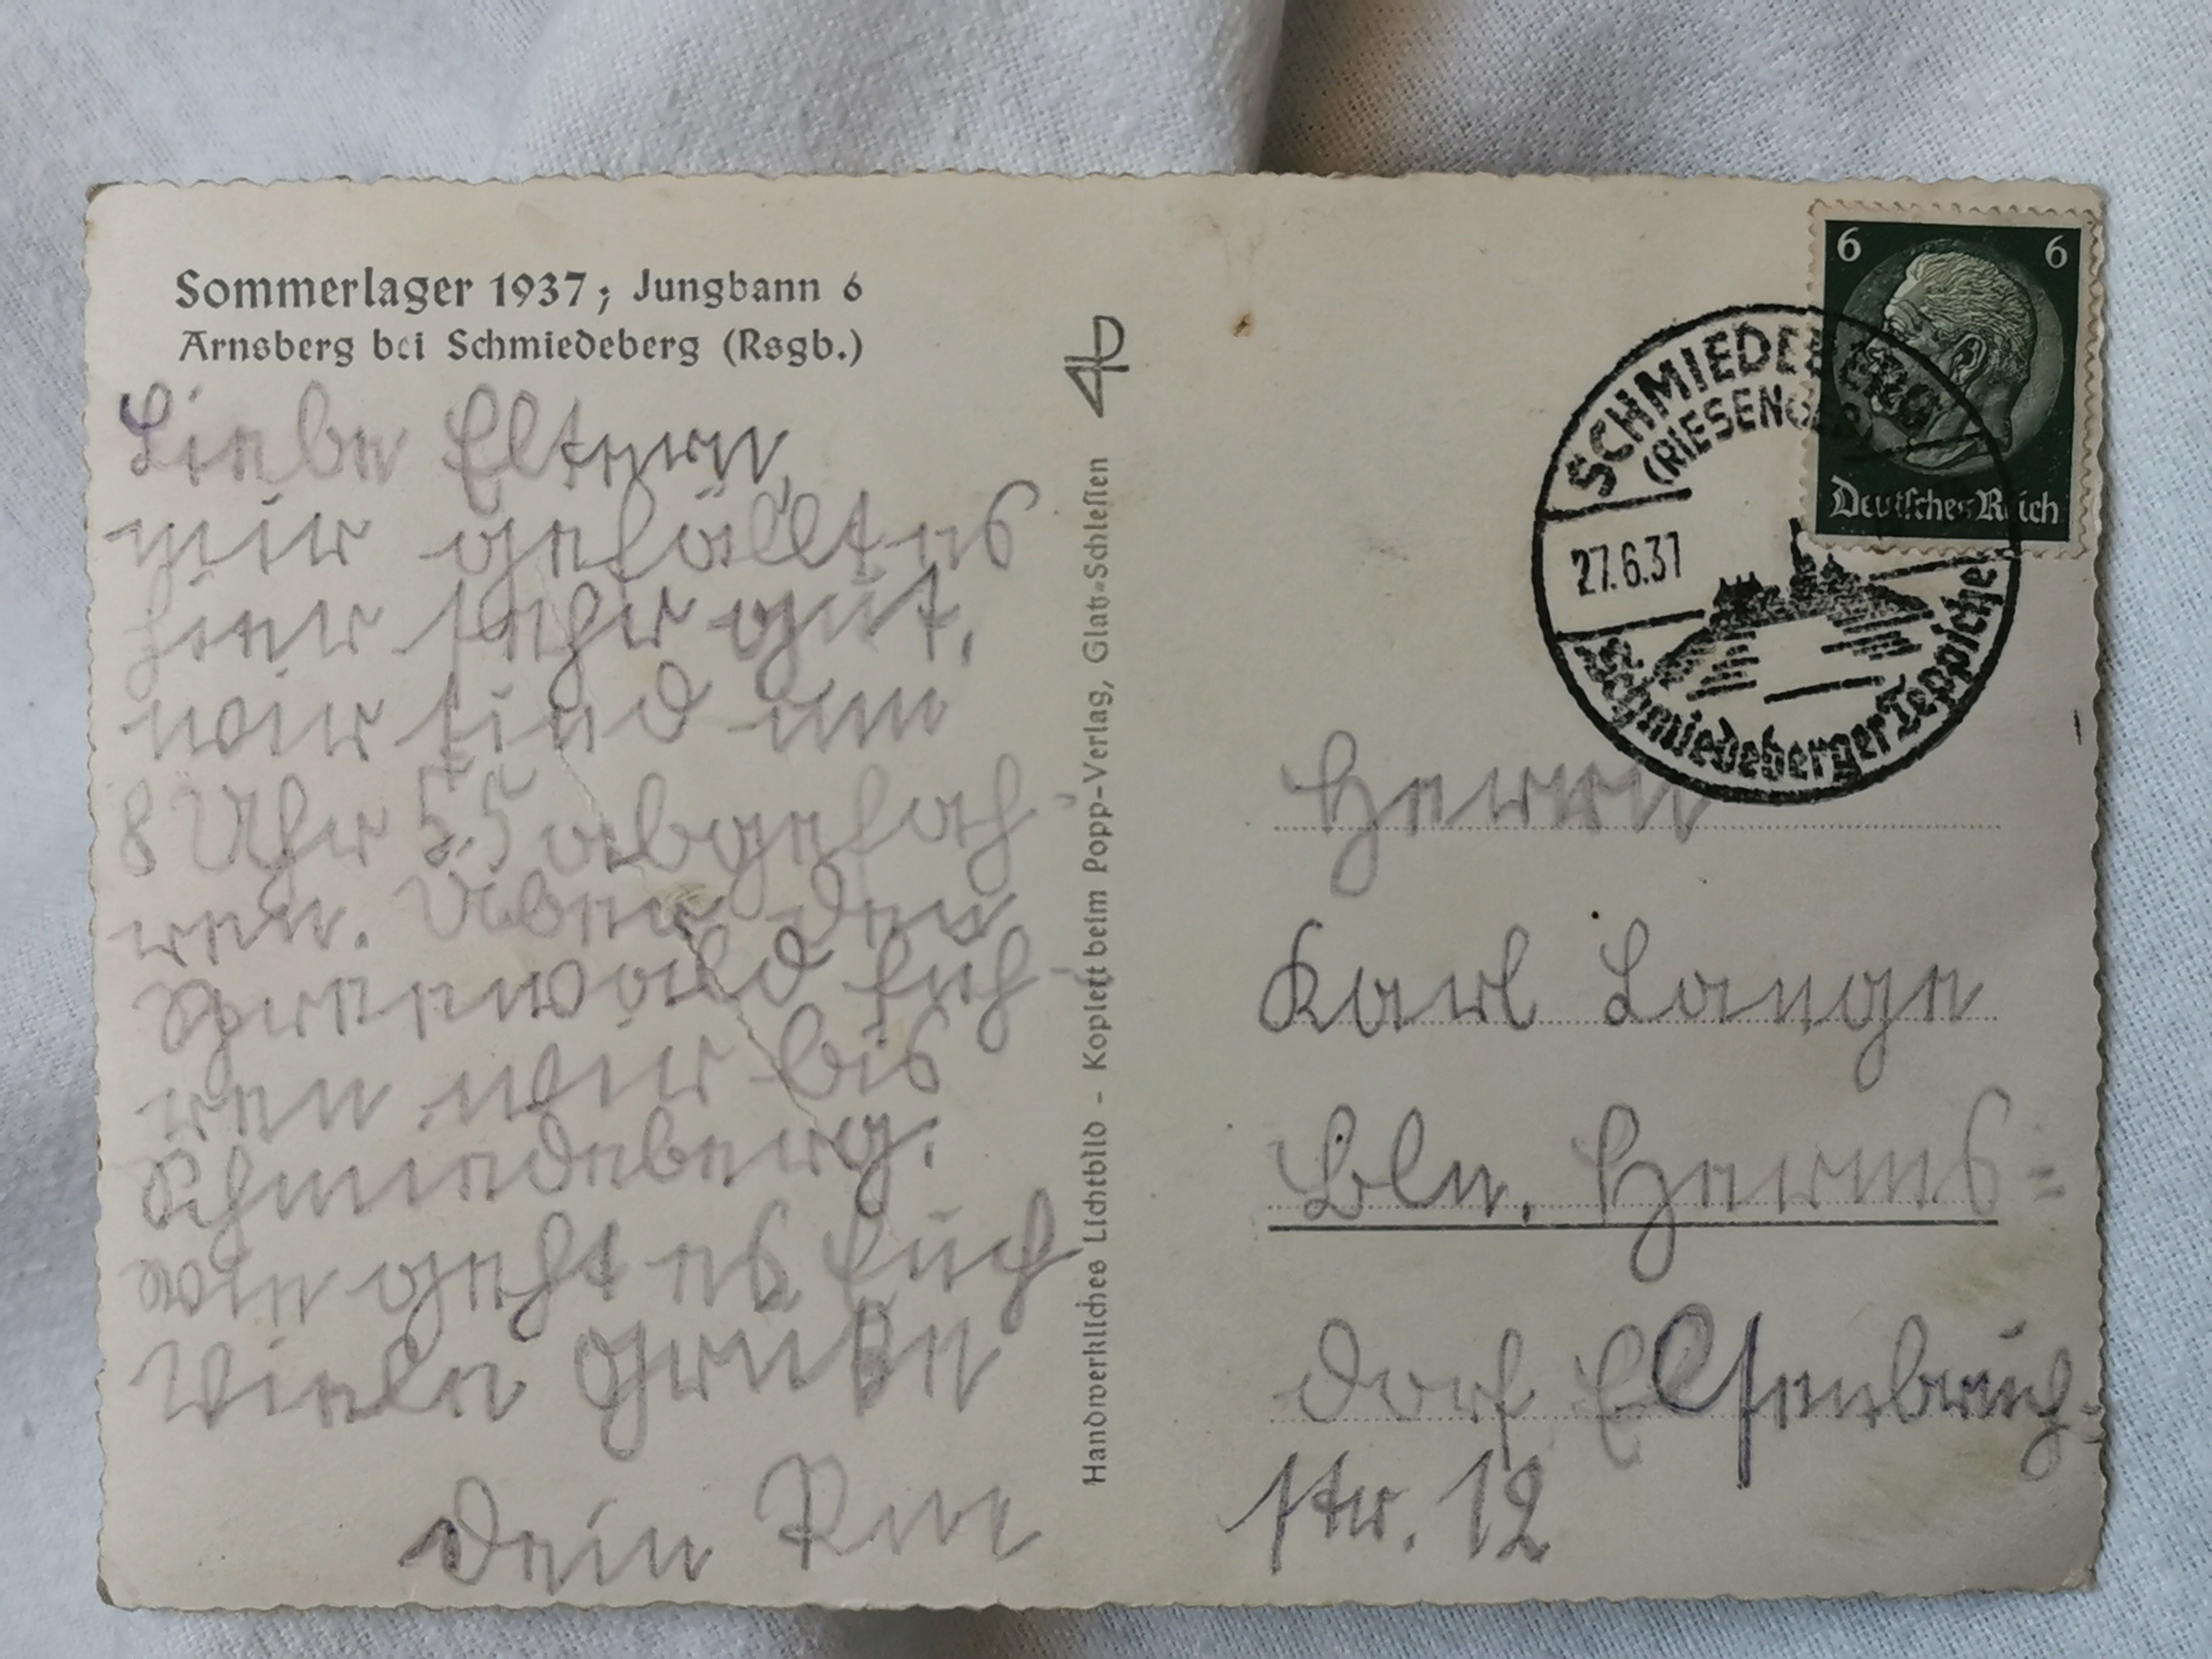 Sommerlager 1937; Jungbann 6
Arnsberg bei Schmiedeberg (Rsgb.)
Liebe Eltern,
mir gefällt es
hier sehr gut,
wir sind um
8 Uhr 55 abgefah-
ren. Über den
Spreewald fuh-
ren wir bis
Schmiedeberg.
wie geht es Euch
Viele Grüße
Dein
Handwerkliches Lichtbild - Koplett beim Popp-Verlag, Glatz-Schlesien
6 6
Deutsches Reich
SCHMIEDEBERG
(RIESENGEB.)
27.6.37
Schmiedeberger Teppiche
Herrn
Karl Lange
Bln. Herms=
dorf Elsenbruch=
str. 12